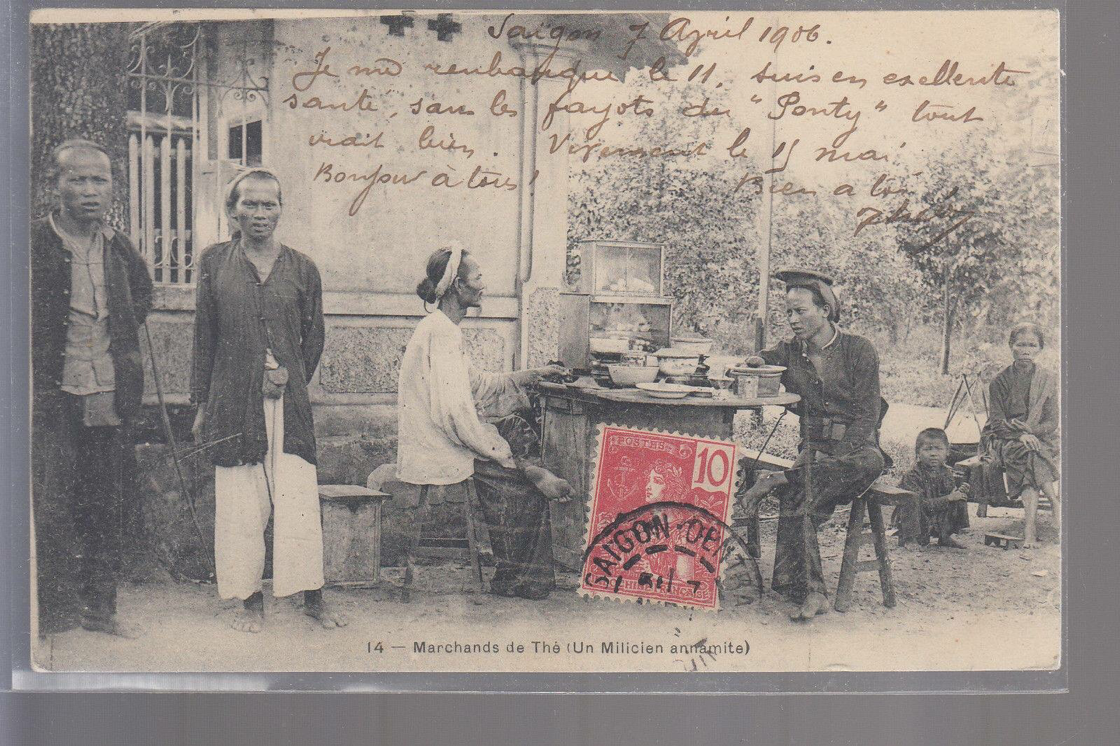 Saïgon 7 Avril 1906.
Je me rembarque le 11, suis en excellente
santé, sans les fayots du "Ponty" tout
irait bien. Vivement le 15 mai!
Bonjour à tous! Bien à toi
POSTES
10
SAIGON-CEN
INDO-CHINE FRANÇAISE
14 — Marchands de Thé (Un Milicien annamite)